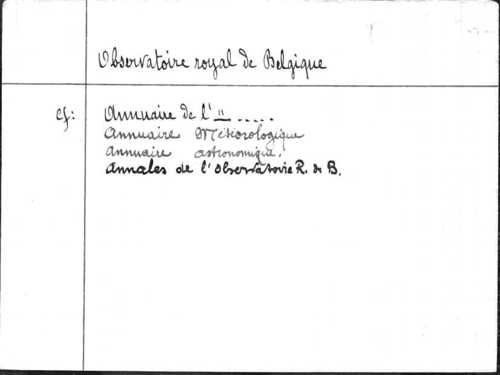 Observatoire royal de Belgique
cf: Annuaire de l' " .....
Annuaire Météorologique
Annuaire astronomique.
Annales de l'Observatoire R. de B.